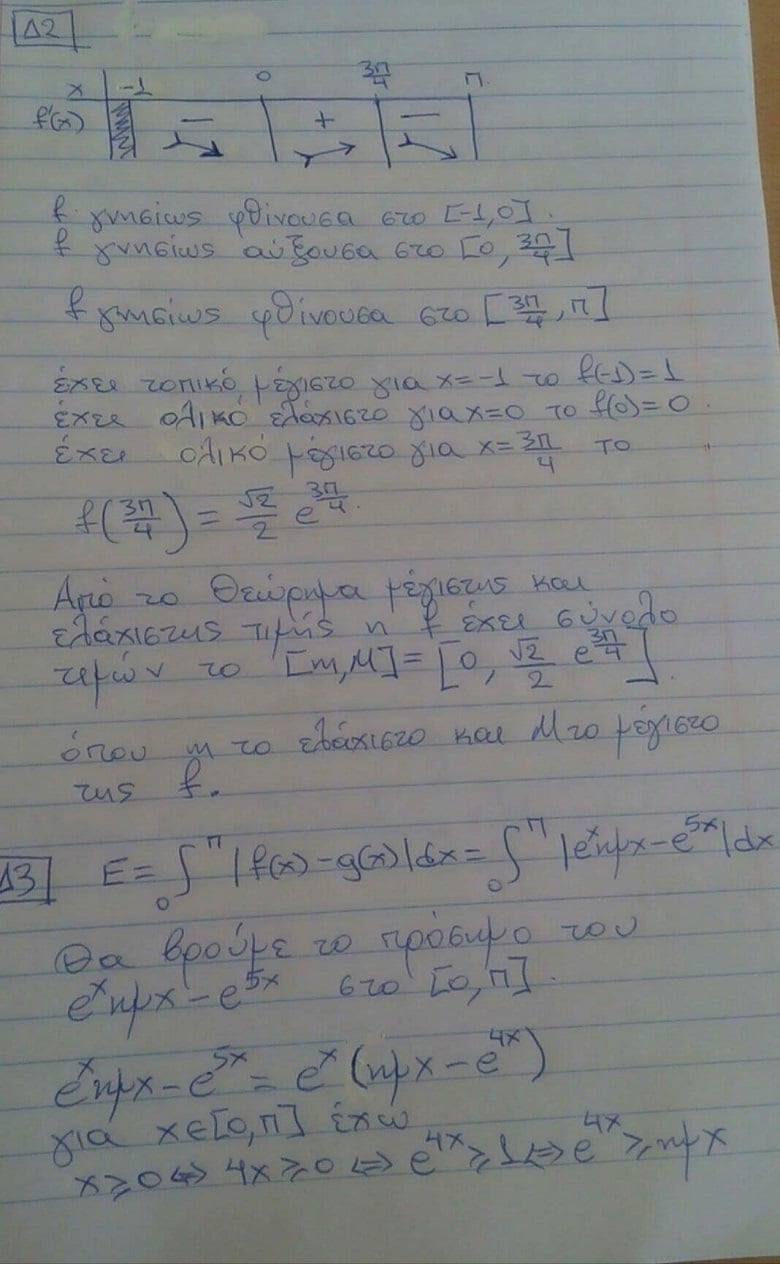 Δ2
x -1 0 3π/4 π
f'(x) − + −
f γνησίως φθίνουσα στο [-1,0].
f γνησίως αύξουσα στο [0, 3π/4]
f γνησίως φθίνουσα στο [3π/4, π]
έχει τοπικό μέγιστο για x=-1 το f(-1)=1
έχει ολικό ελάχιστο για x=0 το f(0)=0.
έχει ολικό μέγιστο για x=3π/4 το
f(3π/4) = √2/2 e^(3π/4).
Από το Θεώρημα μέγιστης και
ελάχιστης τιμής η f έχει σύνολο
τιμών το [m,M]=[0, √2/2 e^(3π/4)].
όπου m το ελάχιστο και M το μέγιστο
της f.
Δ3 E=∫₀^π |f(x)-g(x)|dx=∫₀^π |e^x ημx-e^(5x)|dx
Θα βρούμε το πρόσημο του
e^x ημx-e^(5x) στο [0,π].
e^x ημx-e^(5x) = e^x (ημx-e^(4x))
για x∈[0,π] έχω
x≥0⇔ 4x≥0 ⇔ e^(4x)≥1⇔ e^(4x)≥ημx